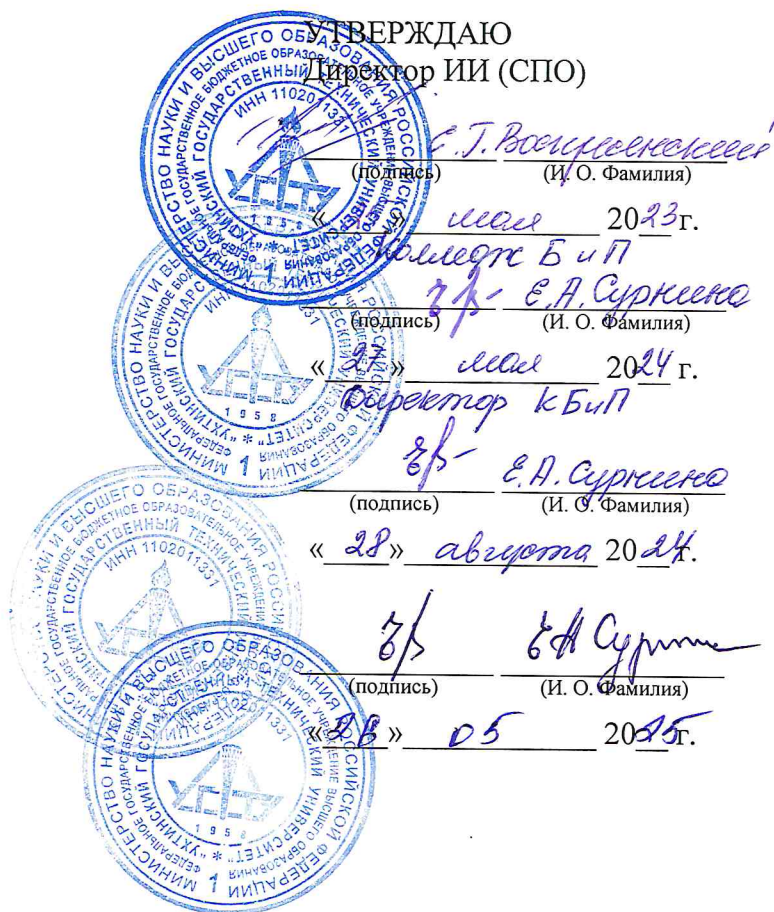 УТВЕРЖДАЮ
Директор ИИ (СПО)
Е.Г. Воскресенский
(подпись) (И. О. Фамилия)
« » мая 2023 г.
Колледж БиП
Е.А. Суркина
(подпись) (И. О. Фамилия)
« 27 » мая 2024 г.
Директор КБиП
Е.А. Суркина
(подпись) (И. О. Фамилия)
« 28 » августа 2024 г.
(подпись) (И. О. Фамилия)
« 26 » 05 2025 г.
МИНИСТЕРСТВО НАУКИ И ВЫСШЕГО ОБРАЗОВАНИЯ РОССИЙСКОЙ ФЕДЕРАЦИИ
ФЕДЕРАЛЬНОЕ ГОСУДАРСТВЕННОЕ БЮДЖЕТНОЕ ОБРАЗОВАТЕЛЬНОЕ УЧРЕЖДЕНИЕ ВЫСШЕГО ОБРАЗОВАНИЯ
"УХТИНСКИЙ ГОСУДАРСТВЕННЫЙ ТЕХНИЧЕСКИЙ УНИВЕРСИТЕТ"
ИНН 1102011331
УГТУ
1958
1